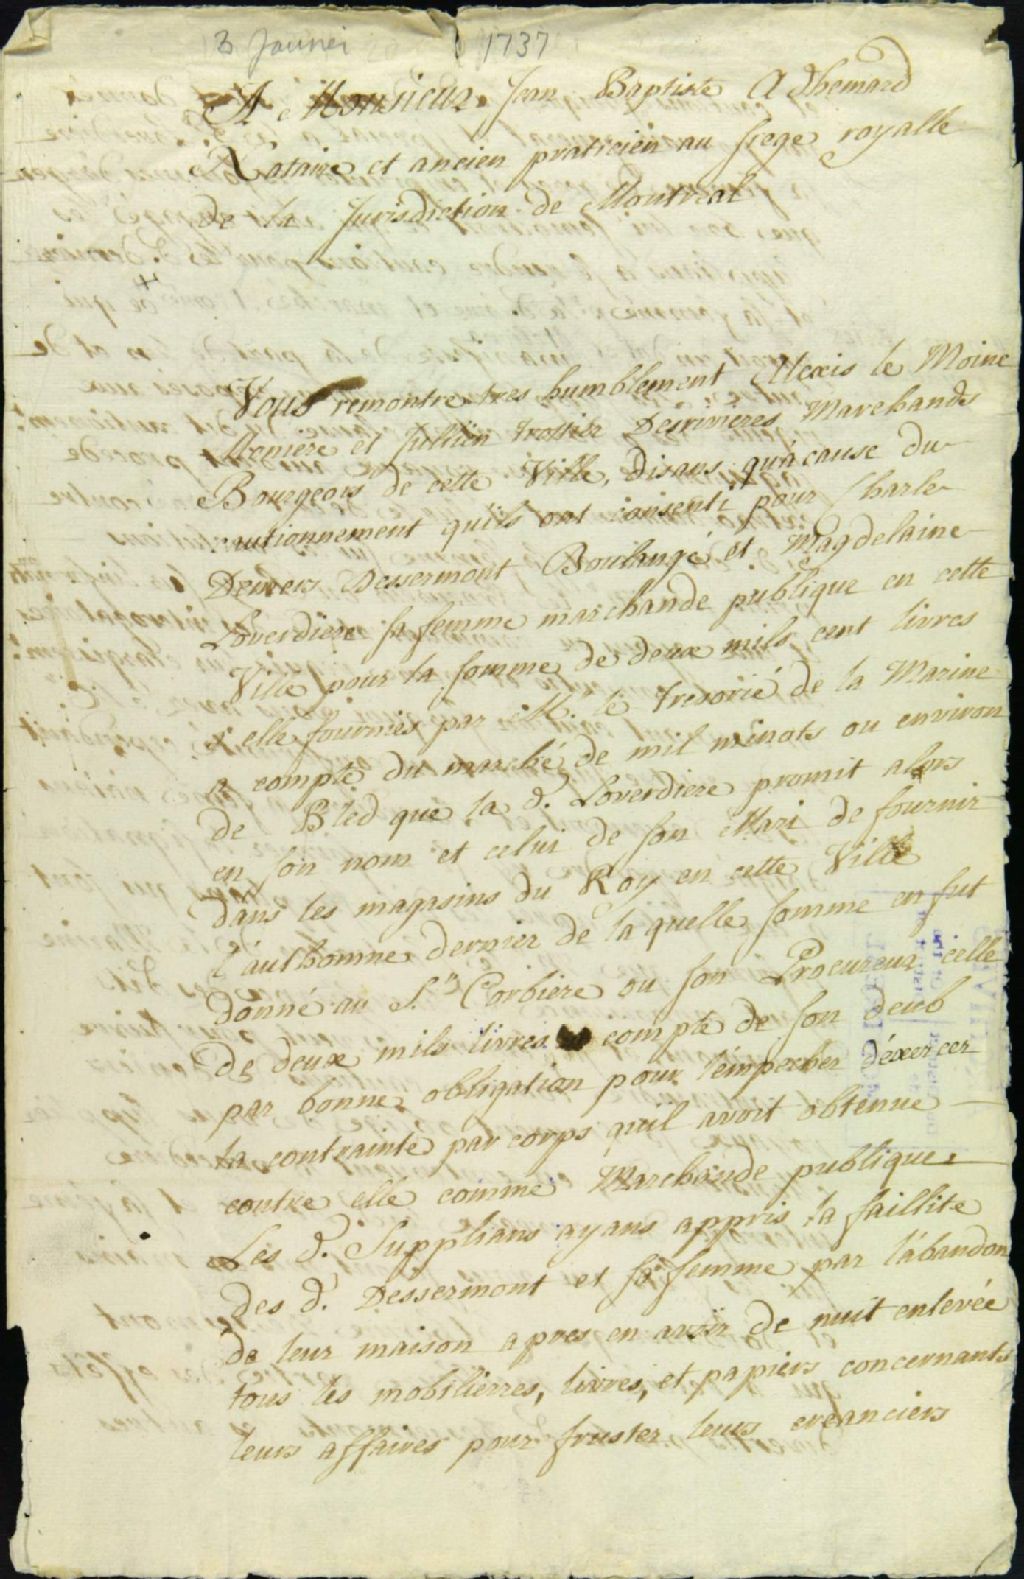 3 Janvier 1737
A Monsieur Jean Baptiste Adhemard
Nataire et ancien praticien au siege royalle
De la Jurisdiction de Montreal
Vous remontre tres humblement Alexis le Moine
Moniere et Jullien Trottier Desrivieres Marchands
Bourgeois de cette Ville, disans qu'a cause du
cautionnement qu'ils ont consenti pour Charle
Demers Dessermont Boulangé et Magdelaine
Loverdiere sa femme marchande publique en cette
Ville pour la somme de deux mils cent livres
a elle fournies par Mr. le Tresorié de la Marine
a compte du marché de mil minots ou environ
de Bled que la d. Loverdiere promit alors
en son nom et celui de son Mari de fournir
dans les magasins du Roy en cette Ville
l'authomne dernier de laquelle somme en fut
donné au Sr. Corbiere ou son Procureur celle
De deux mils livres a compte de son deub
par bonne obligation pour l'empecher d'exercer
la contrainte par corps qu'il avoit obtenue
contre elle comme Marchande publique.
Les d. Supplians ayans appris la faillite
des d. Dessermont et sa femme par l'abandon
de leur maison apres en avoir de nuit enlevée
tous les mobilierres, livres, et papiers concernants
leurs affaires pour fruster leurs creanciers